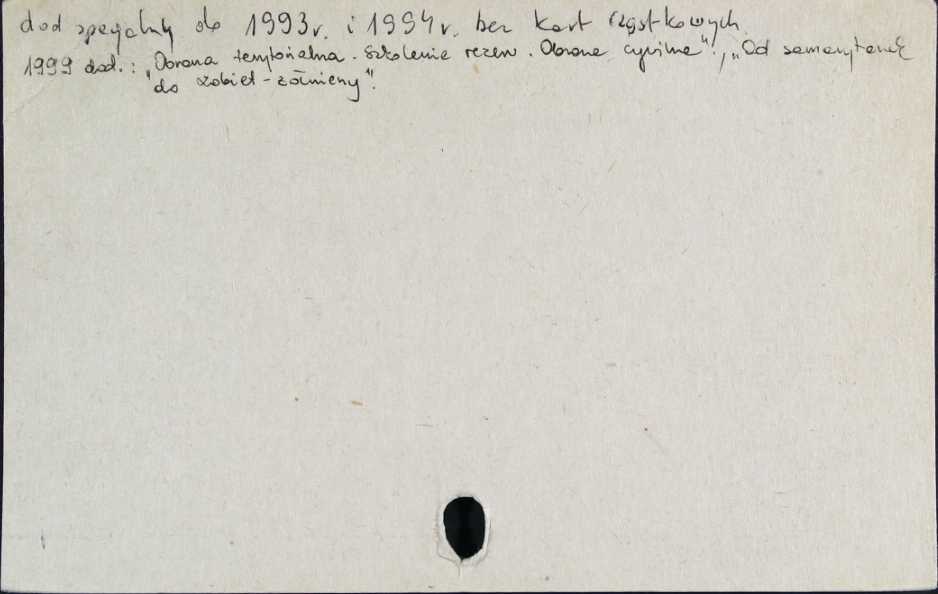 dod specjalny do 1993r. i 1994r. bez kart cząstkowych
1999 dod.: „Obrona terytorialna. Szkolenie rezerw. Obrona cywilna"; „Od samarytanek
do kobiet-żołnierzy".